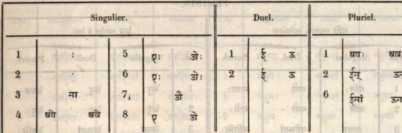 Singulier. Duel. Pluriel.
1 : 5 एः ओः 1 ई ऊ 1
2 6 एः ओः 2 ई ऊ 2 ईन्
3 ना 7 औ 6 ईनां
4 8 ए ओ